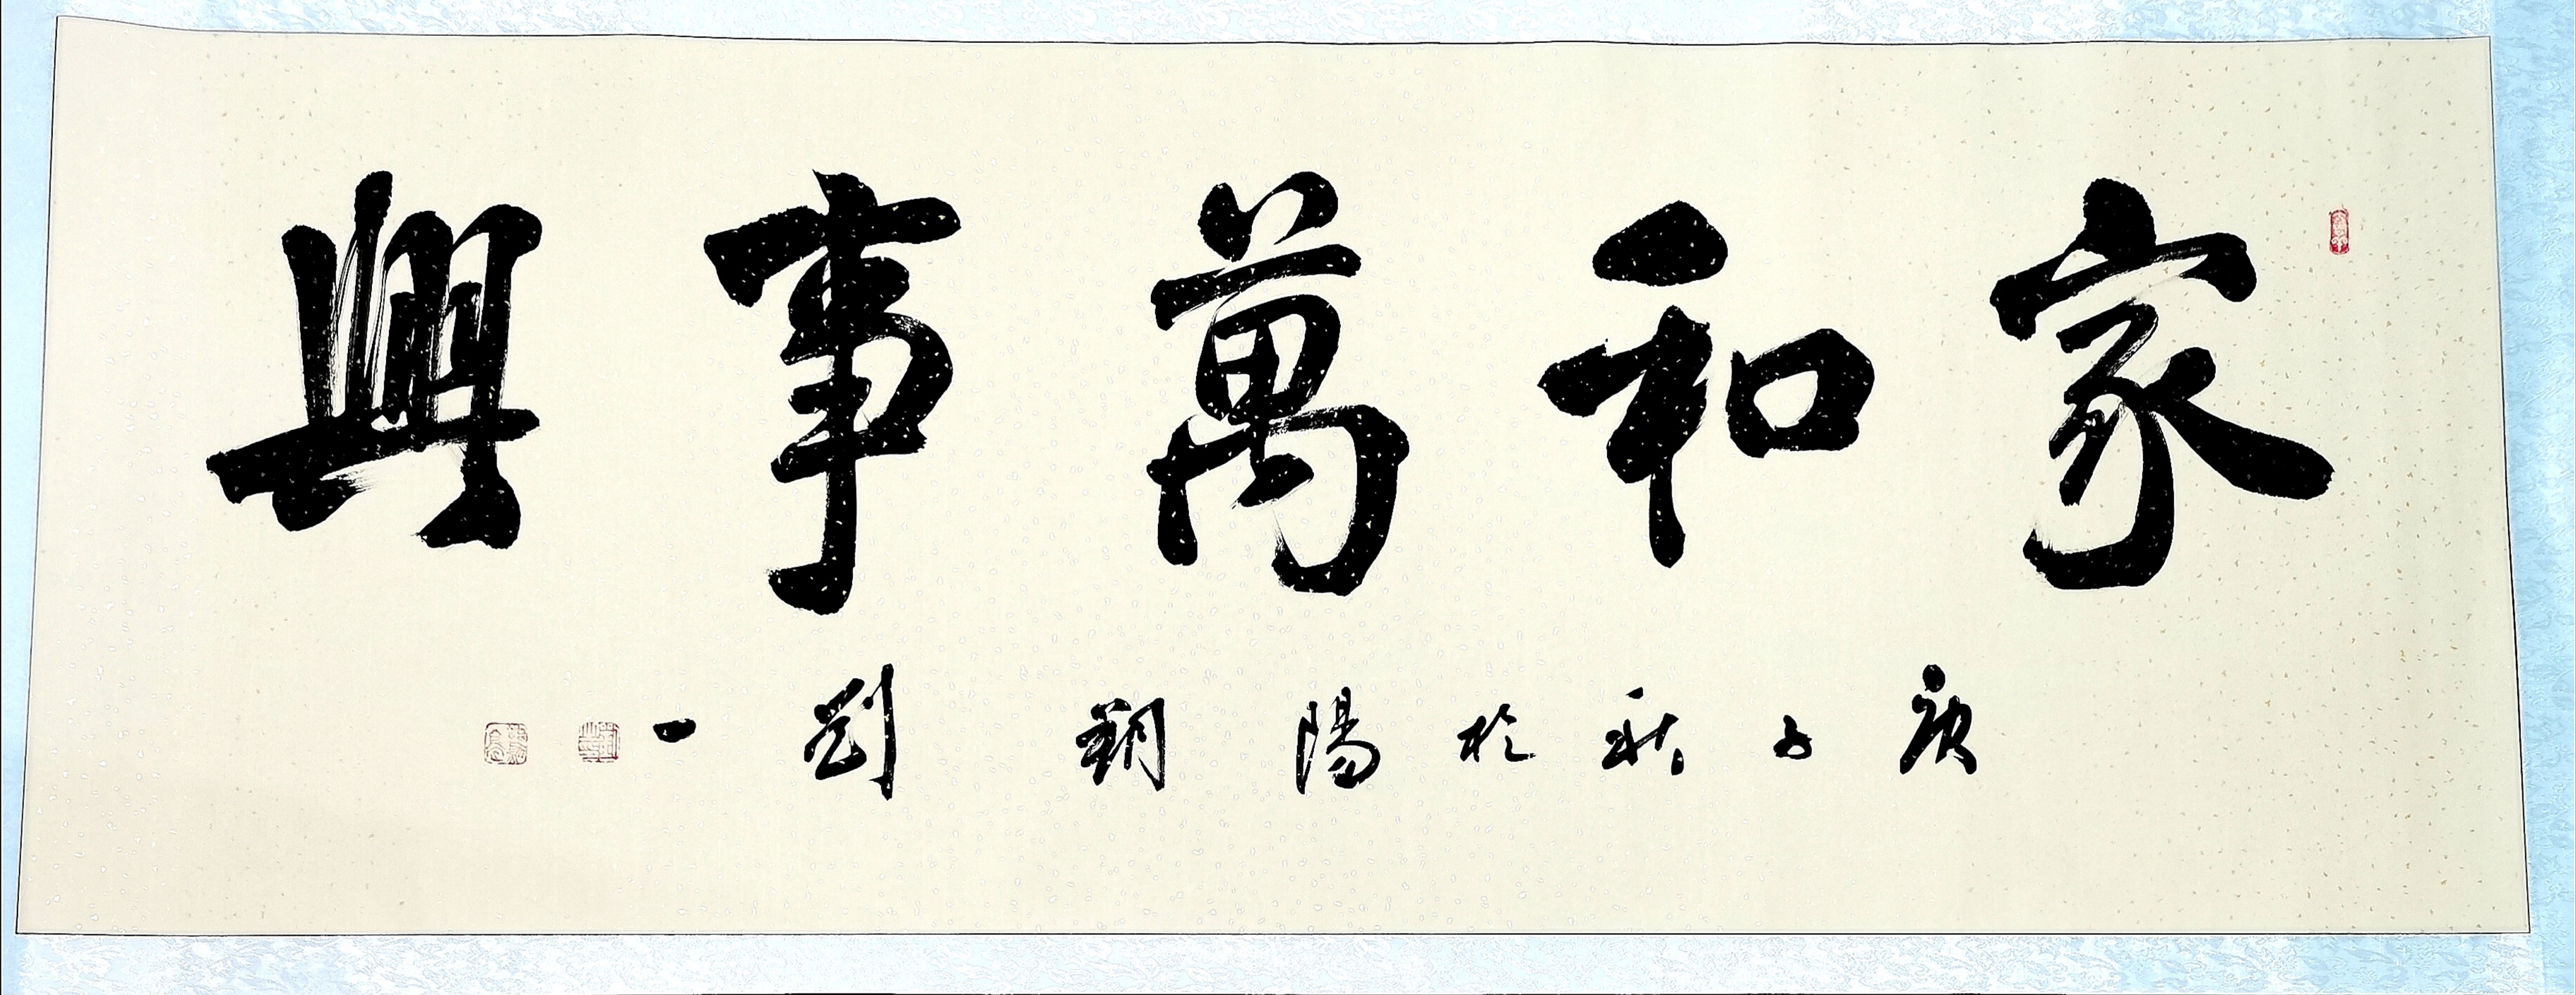 家和萬事興
庚子秋於陽朔劉一